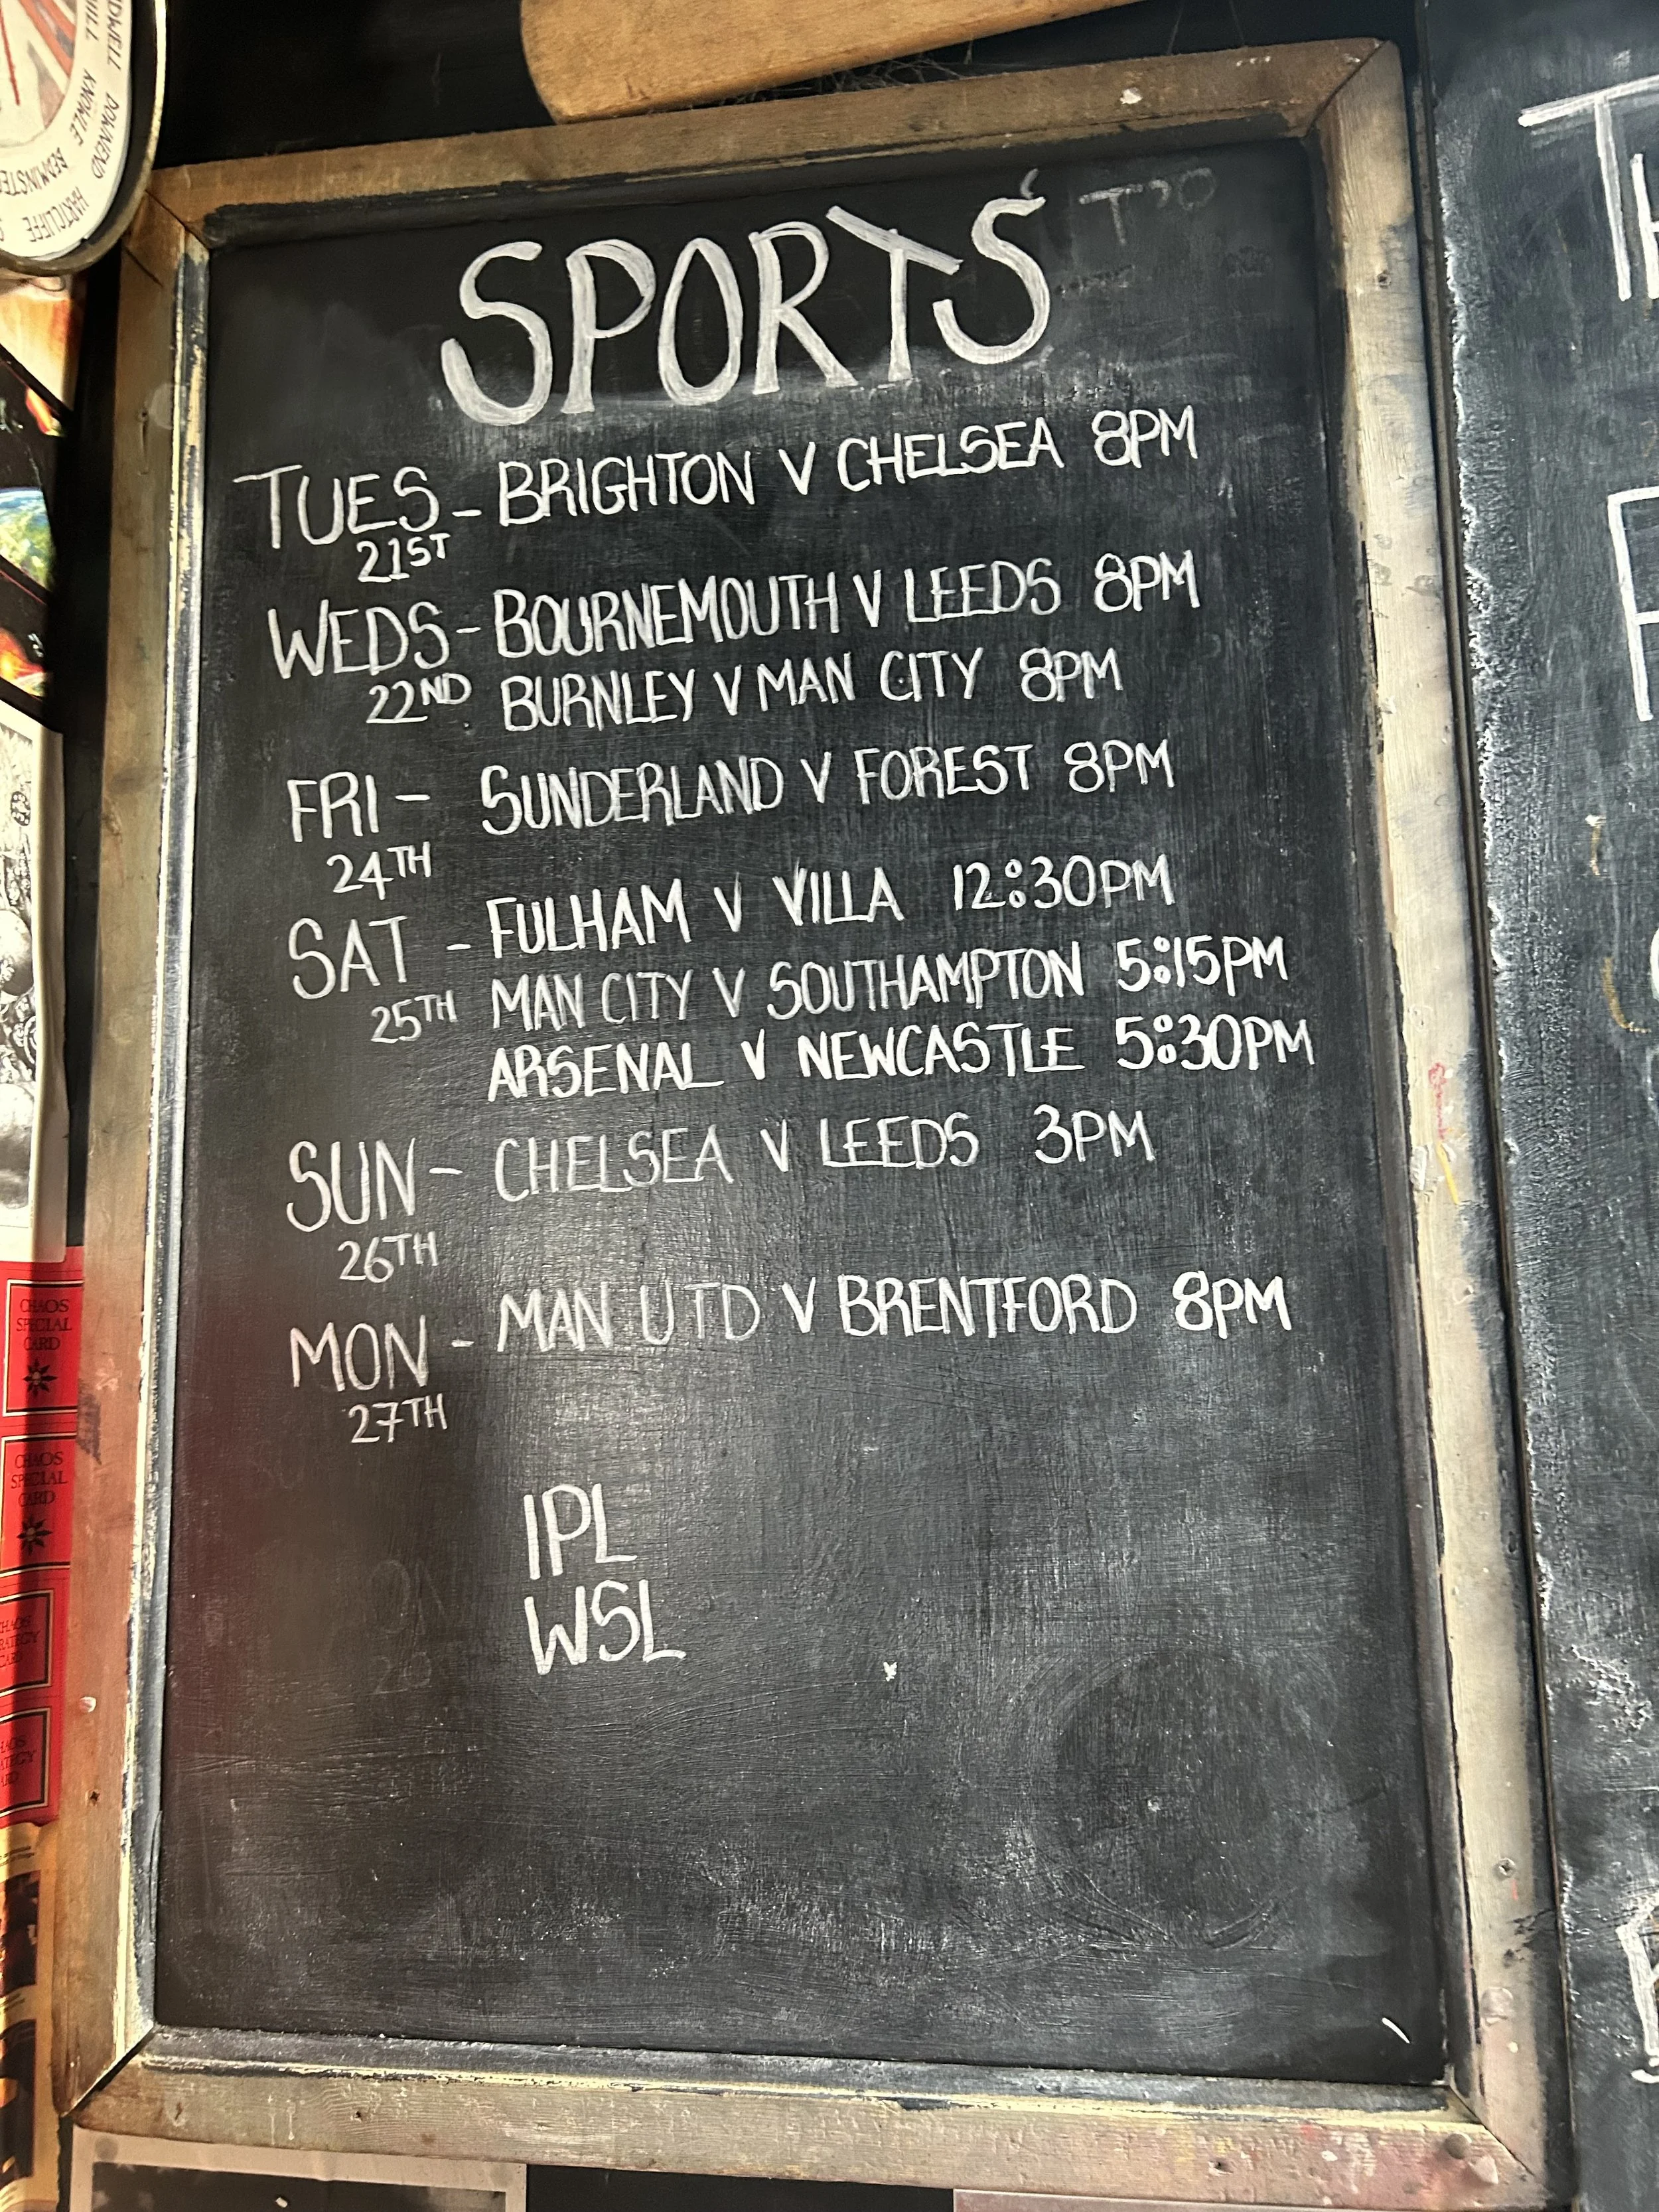 SPORTS
TUES - BRIGHTON V CHELSEA 8PM
21ST
WEDS - BOURNEMOUTH V LEEDS 8PM
22ND BURNLEY V MAN CITY 8PM
FRI - SUNDERLAND V FOREST 8PM
24TH
SAT - FULHAM V VILLA 12:30PM
25TH MAN CITY V SOUTHAMPTON 5:15PM
ARSENAL V NEWCASTLE 5:30PM
SUN - CHELSEA V LEEDS 3PM
26TH
MON - MAN UTD V BRENTFORD 8PM
27TH
IPL
WSL
DOWNEND
KNOWLE
HARTCLIFFE
CHAOS
SPECIAL
CARD
CHAOS
SPECIAL
CARD